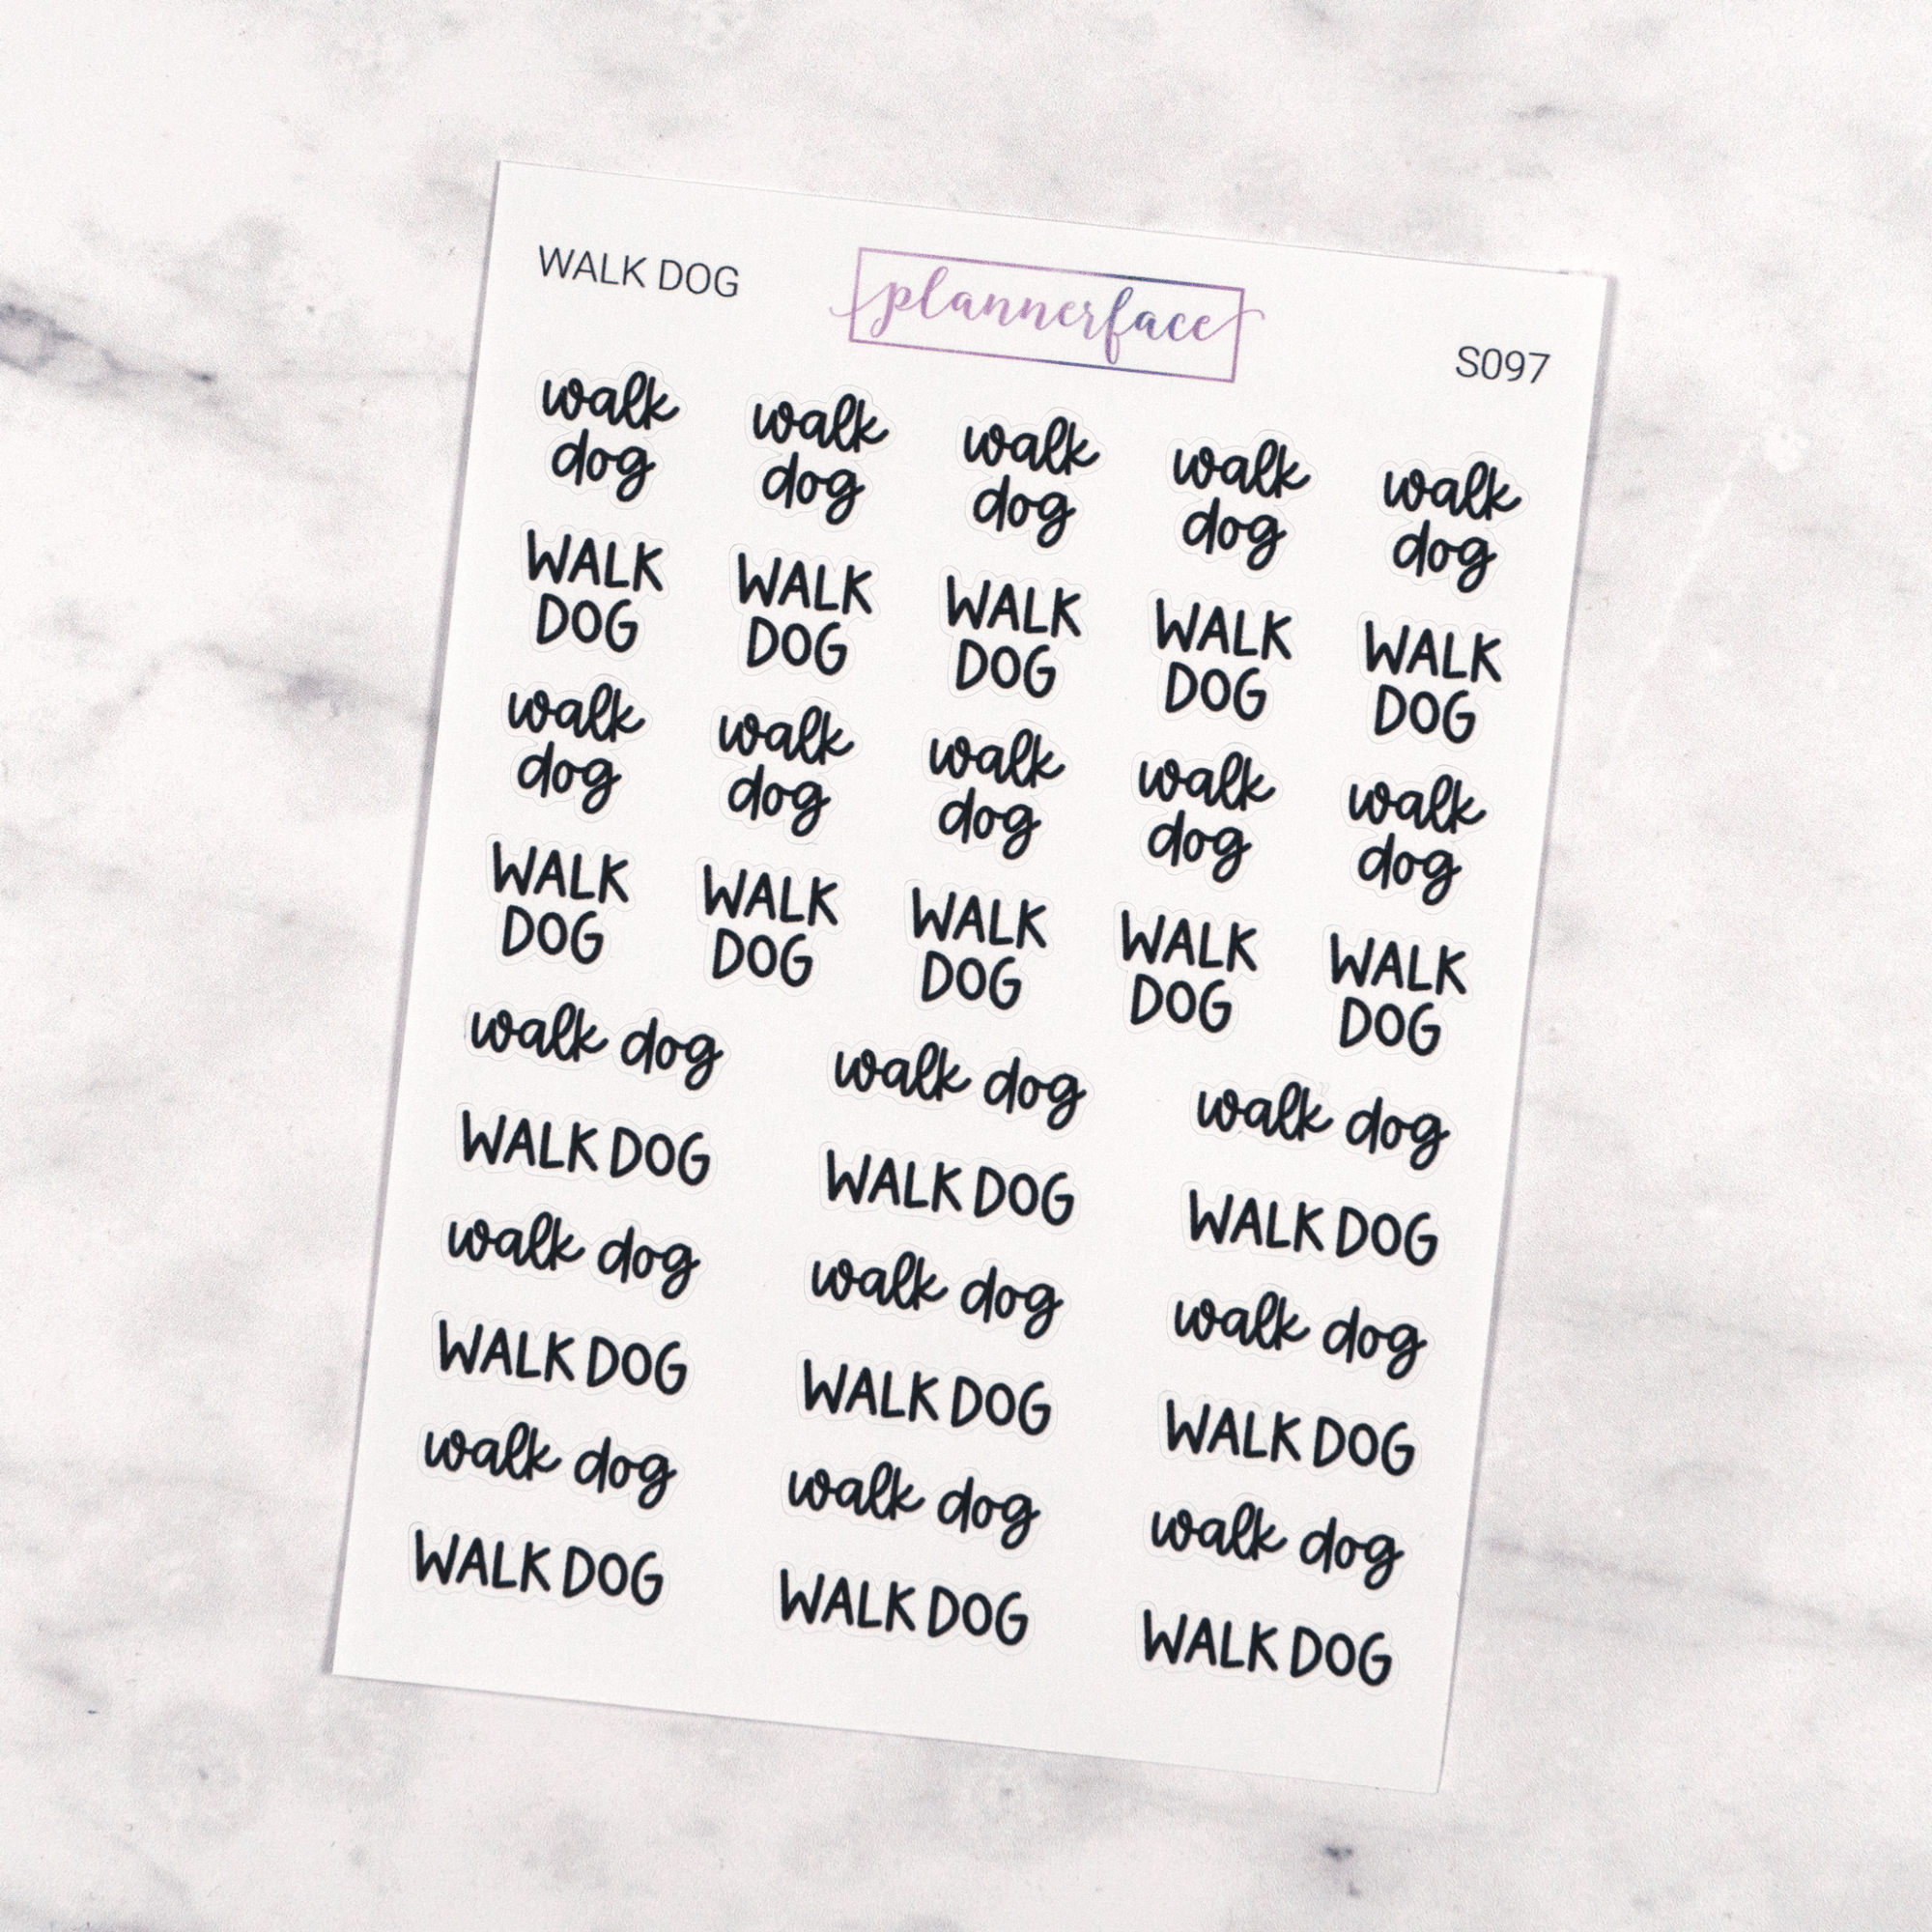 WALK DOG
plannerface
S097
walk walk walk walk walk
dog dog dog dog dog
WALK WALK WALK WALK WALK
DOG DOG DOG DOG DOG
walk walk walk walk walk
dog dog dog dog dog
WALK WALK WALK WALK WALK
DOG DOG DOG DOG DOG
walk dog walk dog walk dog
WALK DOG WALK DOG WALK DOG
walk dog walk dog walk dog
WALK DOG WALK DOG WALK DOG
walk dog walk dog walk dog
WALK DOG WALK DOG WALK DOG